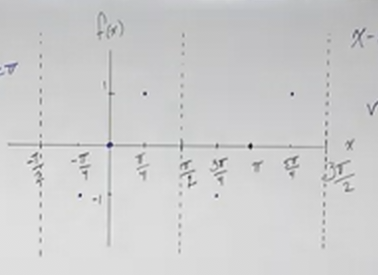 f(x)
x-
π
1
-π/2 -π/4 π/4 π/2 3π/4 π 5π/4 3π/2 x
-1